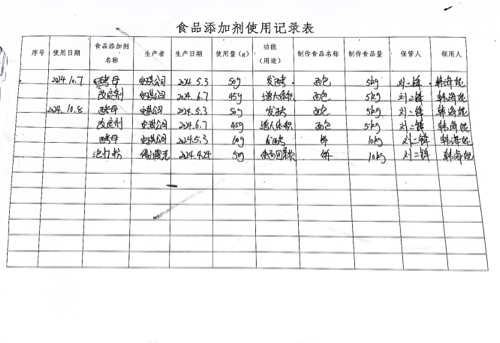 食品添加剂使用记录表
序号 使用日期 食品添加剂名称 生产者 生产日期 使用量(g) 功能(用途) 制作食品名称 制作食品量 保管人 领用人
2024.10.7 酵母 公司 2024.5.3 50g 发酵 面包 5kg 刘二锋 韩海
改良剂 公司 2024.6.7 45g 增大体积 面包 5kg 刘二锋 韩海
2024.10.8 酵母 公司 2024.5.3 50g 发酵 面包 5kg 刘二锋 韩海
改良剂 公司 2024.6.7 45g 增大体积 面包 5kg 刘二锋 韩海
酵母 公司 2024.5.3 60g 发酵 饼 10kg 刘二锋 韩海
泡打粉 2024.4.24 50g 饼 10kg 刘二锋 韩海